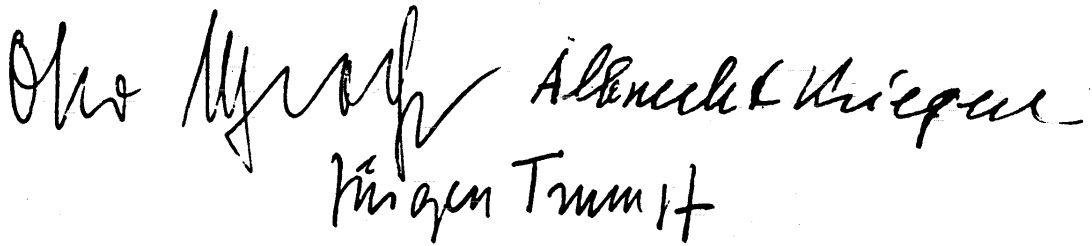 Otto Albrecht Krieger
Jürgen Trumpf